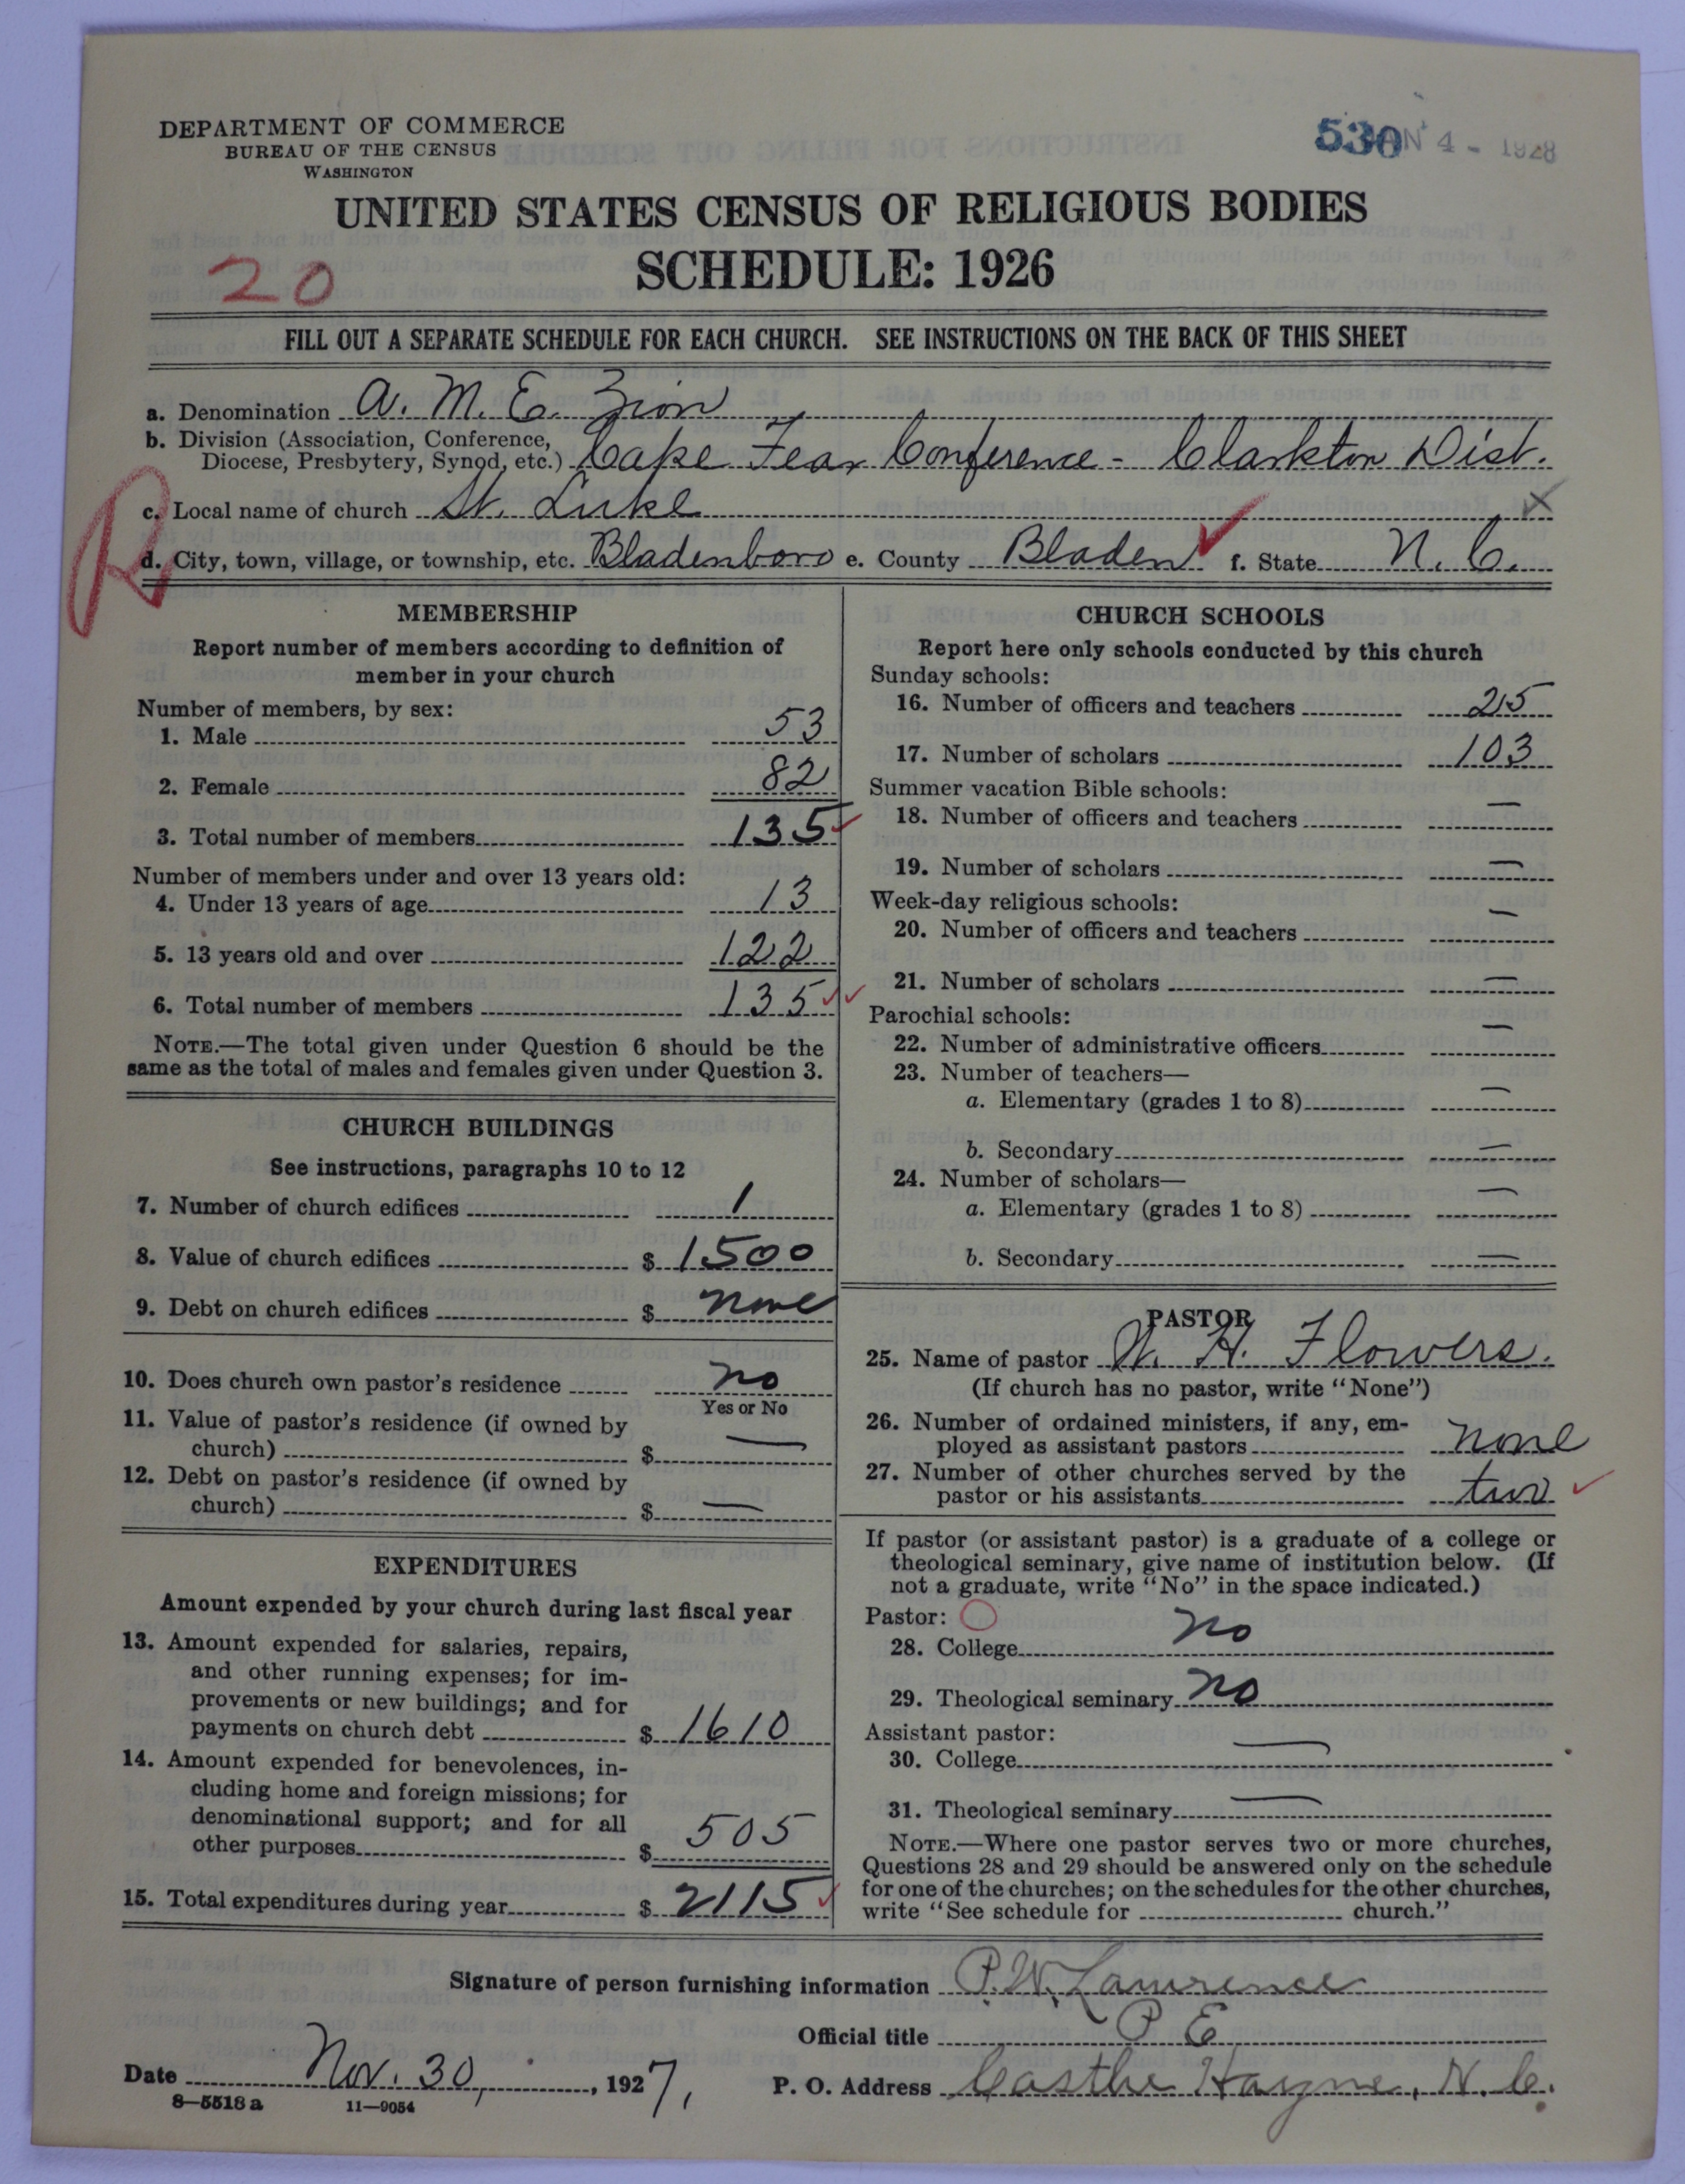 DEPARTMENT OF COMMERCE
BUREAU OF THE CENSUS
WASHINGTON
530 N 4 - 1928
UNITED STATES CENSUS OF RELIGIOUS BODIES
SCHEDULE: 1926
20
FILL OUT A SEPARATE SCHEDULE FOR EACH CHURCH. SEE INSTRUCTIONS ON THE BACK OF THIS SHEET
a. Denomination A. M. E. Zion
b. Division (Association, Conference,
Diocese, Presbytery, Synod, etc.) Cape Fear Conference - Clarkton Dist.
c. Local name of church St. Luke
R
d. City, town, village, or township, etc. Bladenboro e. County Bladen f. State N. C.
MEMBERSHIP
Report number of members according to definition of
member in your church
Number of members, by sex:
1. Male 53
2. Female 82
3. Total number of members 135
Number of members under and over 13 years old:
4. Under 13 years of age 13
5. 13 years old and over 122
6. Total number of members 135
NOTE.—The total given under Question 6 should be the
same as the total of males and females given under Question 3.
CHURCH BUILDINGS
See instructions, paragraphs 10 to 12
7. Number of church edifices 1
8. Value of church edifices $ 1500
9. Debt on church edifices $ none
10. Does church own pastor's residence no
Yes or No
11. Value of pastor's residence (if owned by
church) $ —
12. Debt on pastor's residence (if owned by
church) $ —
EXPENDITURES
Amount expended by your church during last fiscal year
13. Amount expended for salaries, repairs,
and other running expenses; for im-
provements or new buildings; and for
payments on church debt $ 1610
14. Amount expended for benevolences, in-
cluding home and foreign missions; for
denominational support; and for all
other purposes $ 505
15. Total expenditures during year $ 2115
CHURCH SCHOOLS
Report here only schools conducted by this church
Sunday schools:
16. Number of officers and teachers 25
17. Number of scholars 103
Summer vacation Bible schools:
18. Number of officers and teachers —
19. Number of scholars —
Week-day religious schools:
20. Number of officers and teachers —
21. Number of scholars —
Parochial schools:
22. Number of administrative officers —
23. Number of teachers—
a. Elementary (grades 1 to 8) —
b. Secondary —
24. Number of scholars—
a. Elementary (grades 1 to 8) —
b. Secondary —
PASTOR
25. Name of pastor W. H. Flowers.
(If church has no pastor, write "None")
26. Number of ordained ministers, if any, em-
ployed as assistant pastors none
27. Number of other churches served by the
pastor or his assistants two
If pastor (or assistant pastor) is a graduate of a college or
theological seminary, give name of institution below. (If
not a graduate, write "No" in the space indicated.)
Pastor:
28. College no
29. Theological seminary no
Assistant pastor:
30. College —
31. Theological seminary —
NOTE.—Where one pastor serves two or more churches,
Questions 28 and 29 should be answered only on the schedule
for one of the churches; on the schedules for the other churches,
write "See schedule for ________ church."
Signature of person furnishing information P. W. Lawrence
Official title P E
Date Nov. 30, 1927, P. O. Address Casthe Hayne, N. C.
8—5518 a 11—9054